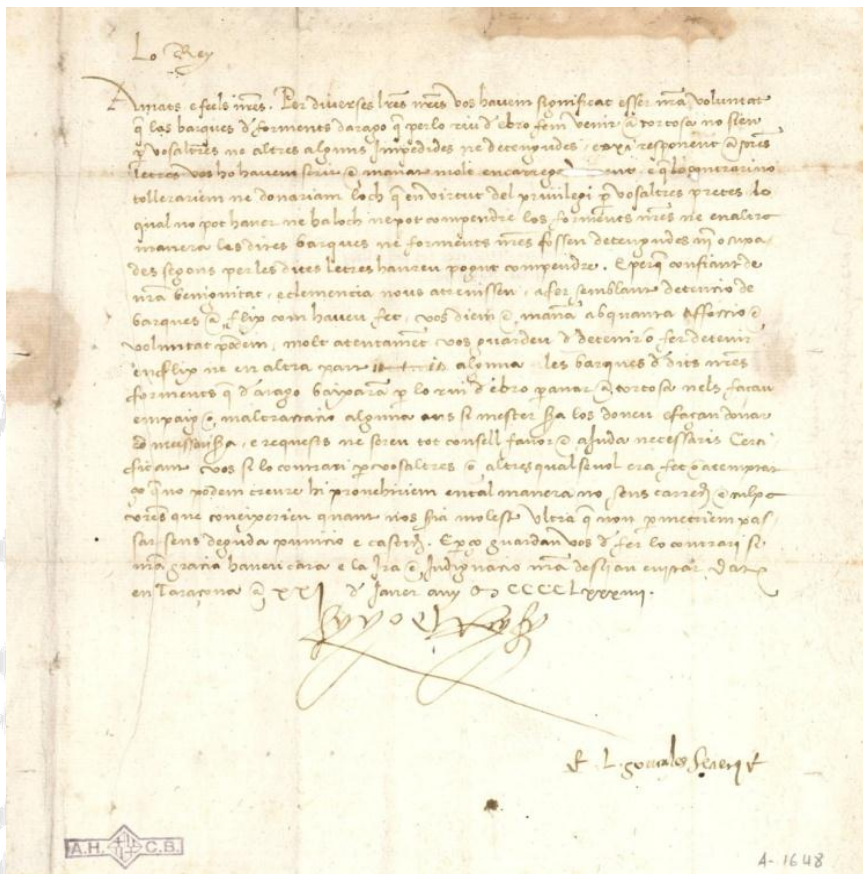 Lo Rey
Amats e feels nres. Per diverses lres nres vos havem significat esser nra voluntat
q las barques d forments darago q per lo riu d ebro fem venir a tortosa no sien
p vosaltres ne altres alguns Impedides ne detengudes, e axi responent a vres
letres vos ho havem scrit e manat molt encarregadament, e q lo contrari no
tollerariem ne donariem loch q en virtut del privilegi p vosaltres pretes lo
qual no pot haver ne ha loch ne pot compendre los forments nres ne en altra
manera les dites barques ne forments nres fossen detengudes ni ocupa
des segons per les dites letres haureu pogut compendre. E perq confiant de
nra benignitat, e clemencia nous atrevissen, a fer semblant detencio de
barques a flix com haveu fet, vos diem e mana ab quanta affectio e
voluntat podem, molt atentament vos guardeu d detenir o fer detenir
en flix ne en altra part alguna les barques d dits nres
forments q d arago baixara p lo riu d ebro p anar a tortosa nels façau
empaig e maltractacio alguna ans si mester sra los doneu e façau donar
e requests ne sereu tot consell favor e ajuda necessaris Certi
ficant vos si lo contrari p vosaltres o altres qualsevol era fet o atemptat
ço q no podem creure hi provehiriem en tal manera no sens carrech e culpa
vres que coneixerieu quant nos sia molest Ultra q non pmetriem pas
sar sens deguda punicio e castich. E p ço guardau vos d fer lo contrari si
nra gracia haveu cara e la Ira e Indignacio nra desijau evitar. Dat
en Taraçona a XXI d Janer any M CCCC LXXXIIII.
yo el Rey
A.H. C.B.
A-1648